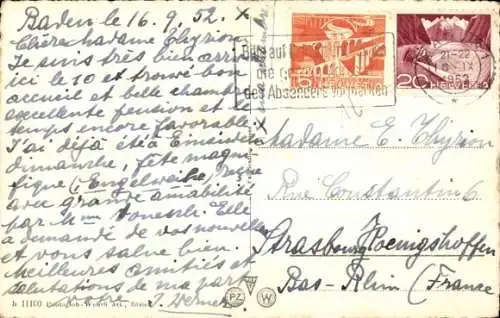 Baden le 16. 9. 52.
Chère madame Thyrion
Je suis très bien arrivé
ici le 10 et trouvé bon
accueil et belle chambre
excellente pension et le
temps encore favorable.
J'ai déjà été à
dimanche, fête magni
fique (Engelweihe) reçue
avec grande amabilité
par Mme Elle
a demandé de vos nouvelles
et vous salue bien.
Meilleures amitiés et
salutations de ma part
votre J.
15
HELVETIA
20 HELVETIA
Bitte auf
die
des Absenders
21-22
IX
1952
Madame E. Thyrion
Rue Constantin 6
Strasbourg Koenigshoffen
Bas-Rhin (France
Je 11100 Photoglob-Wehrli
PZ
W